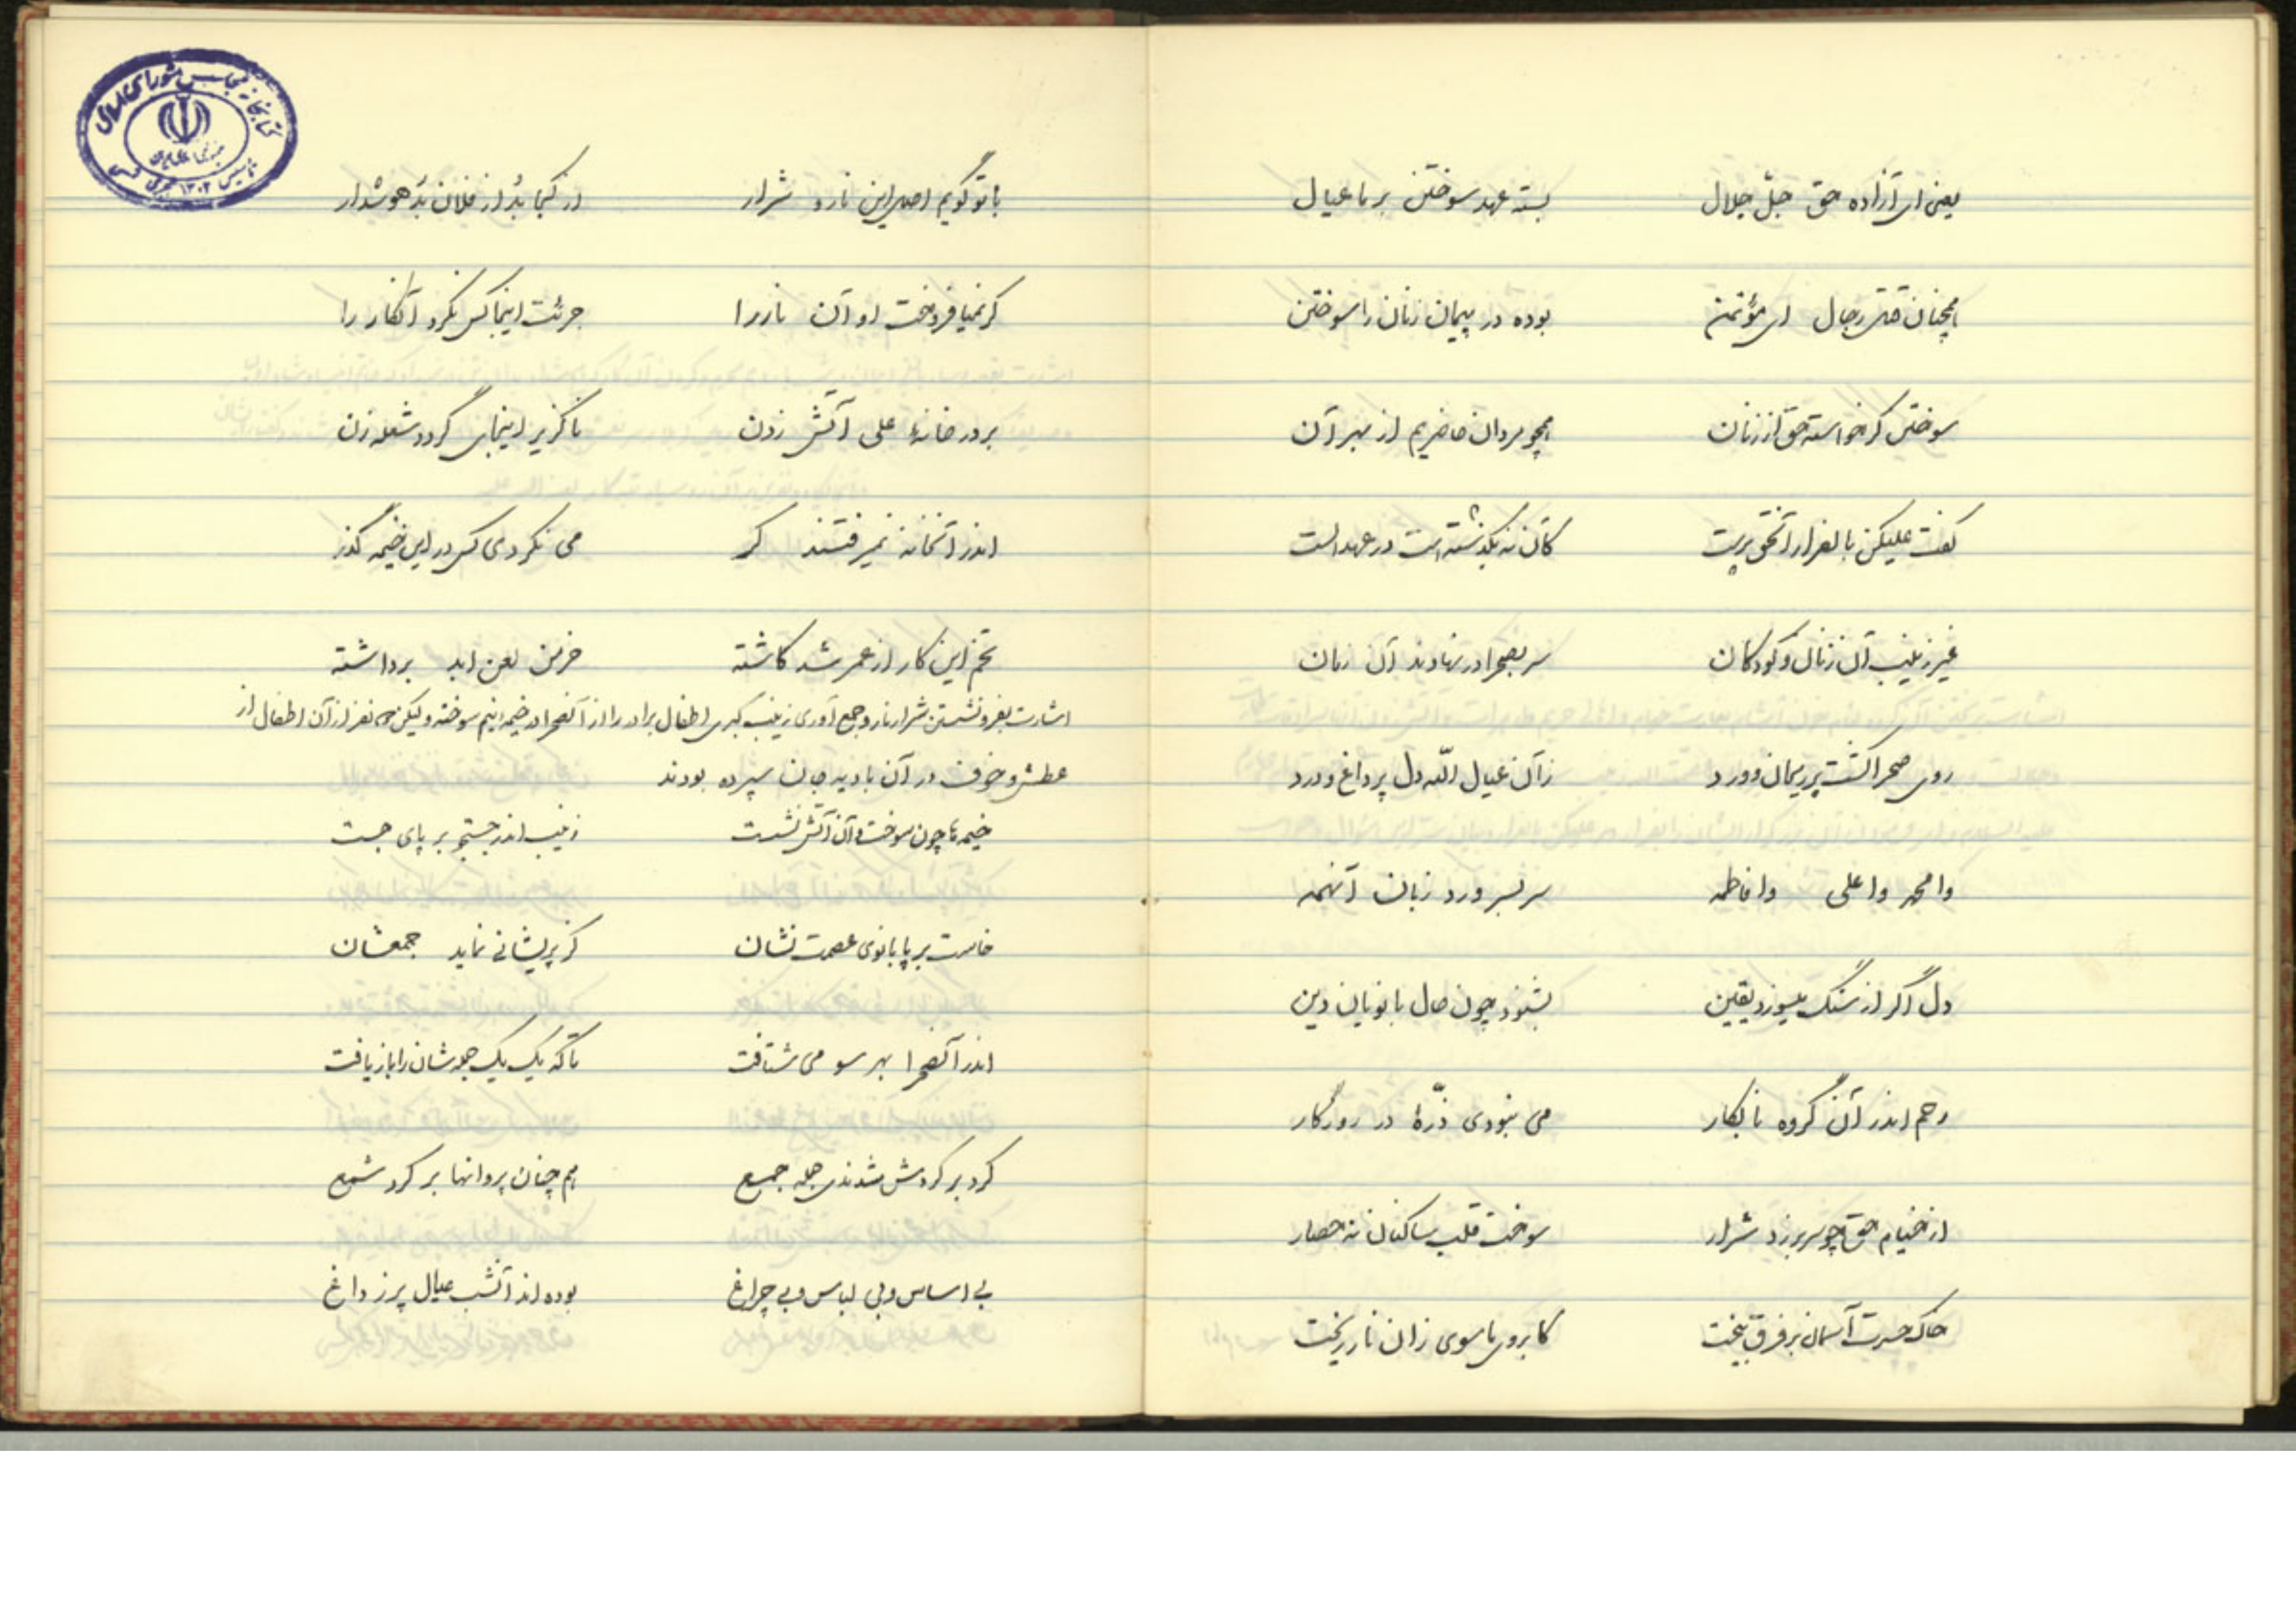 یعنی ای آزاده حق جلّ جلال بسته عهد سوختن بر ما عیال
همچنان قتل رجال ای مؤتمن بوده در پیمان زنان را سوختن
سوختن گر خواسته حق از زنان همچو مردان حاضریم از بهر آن
گفت علیکن بالفرار آنحق پرست کان نه بگذشته است در عهد الست
غیر زینب آن زنان و کودکان سر بصحرا در نهادند آن زمان
روی صحرا گشت پر ریحان و ورد زآن عیال الله دل پر داغ و درد
وا محمد وا علی وا فاطمه سر بسر ورد زبان آنهمه
دل اگر از سنگ میسوزد یقین بشنود چون حال بانویان دین
رحم اندر آن گروه نابکار می نبودی ذرّهٔ در روزگار
از خیام حق چو سر بر زد شرار سوخت قلب ساکنان نه حصار
خاک حسرت آسمان بر فرق بیخت کابروی ماسوی زان نار ریخت
کتابخانه مجلس شورای اسلامی
جمهوری اسلامی ایران
تاسیس ۱۳۰۲ هجری شمسی
با تو گویم اصل این نار و شرار از کجا بُد از فلان بَد هوشدار
گر نمیافروخت او آن نار را جرئت اینجا کس نکرد آنکار را
بر در خانهٔ علی آتش زدن ناگزیر اینجای گردد شعله زن
اندر آنخانه نمیرفتند گر می نکردی کس در این خیمه گذر
تخم این کار از عمر شد کاشته خرمن لعن ابد برداشته
اشارت بفرونشستن شرار نار و جمع آوری زینب کبری اطفال برادر را از آنصحرا در خیمه نیم سوخته ولیکن نفر از آن اطفال از
عطش و خوف در آن بادیه جان سپرده بودند
خیمه ها چون سوخت و آن آتش نشست زینب اندر جستجو بر پای جست
خاست بر پا بانوی عصمت نشان کز پریشانی نماید جمعشان
اندر آنصحرا بهر سو می شتافت تا که یک یک جمله شان را باز یافت
گرد بر گردش شدندی جمله جمع هم چنان پروانها بر گرد شمع
بی اساس و بی لباس و بی چراغ بوده اند آنشب عیال پر ز داغ